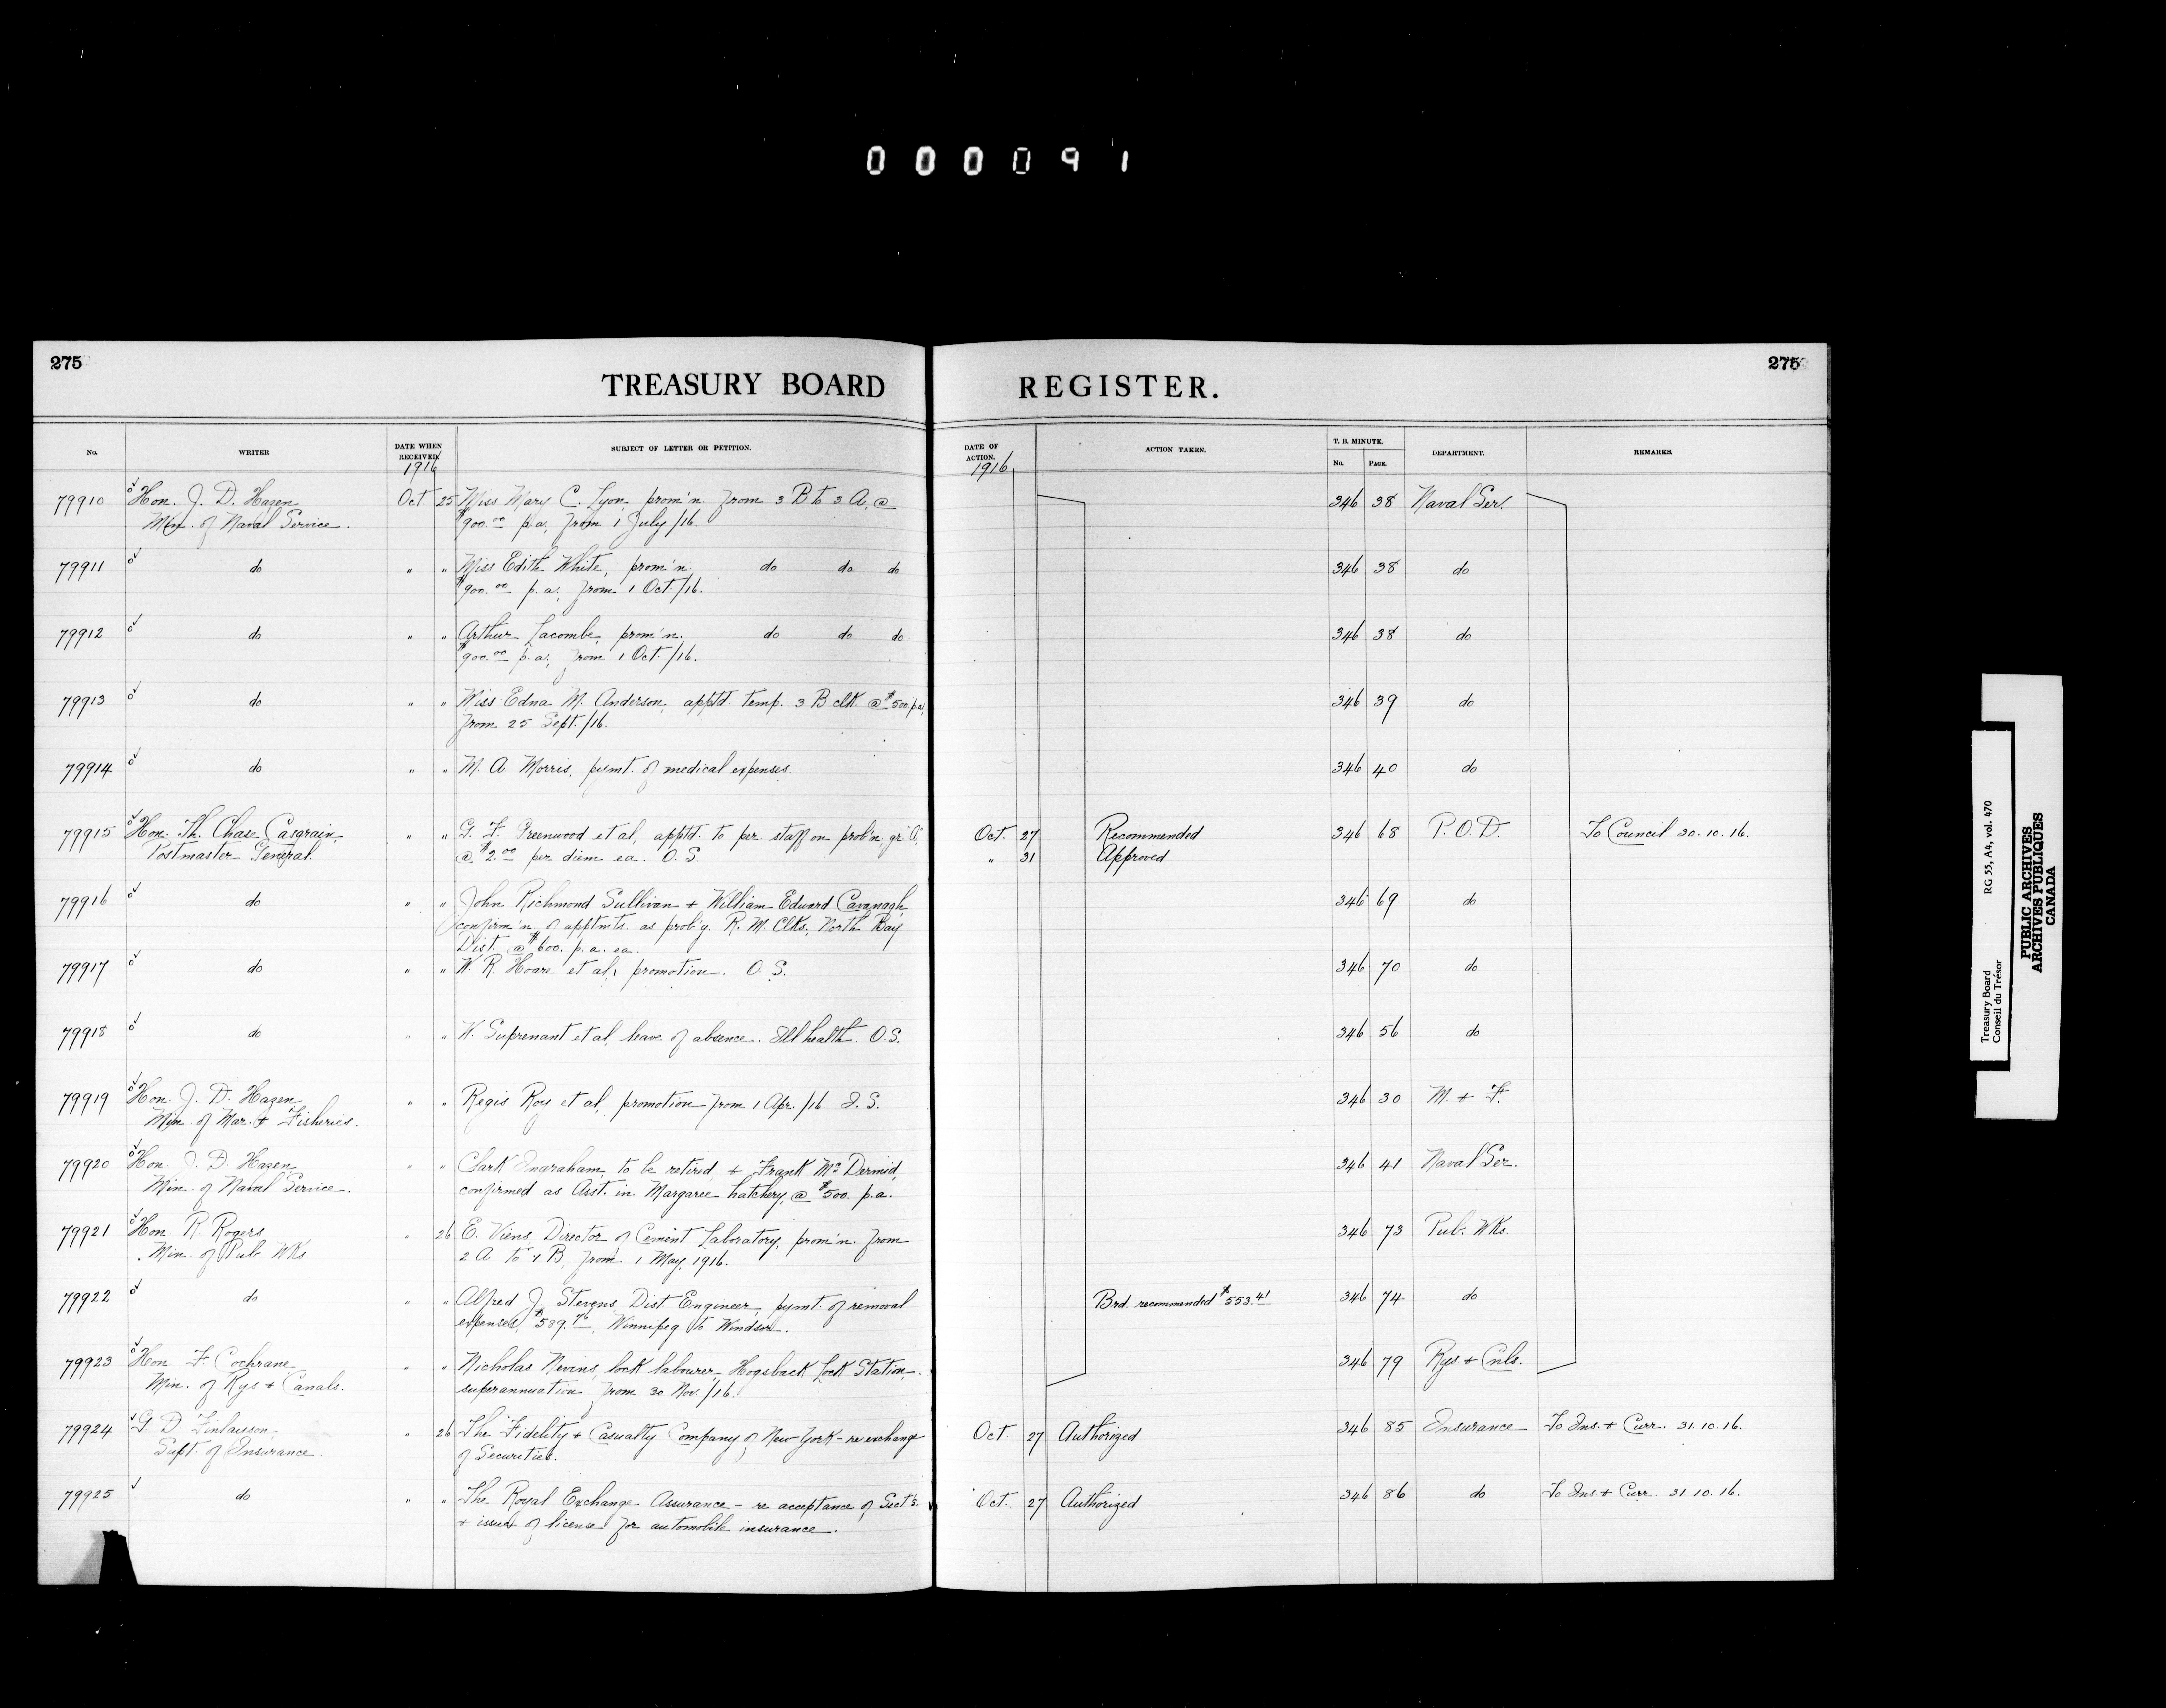 000091
275
275
TREASURY BOARD REGISTER.
No. WRITER DATE WHEN RECEIVED. SUBJECT OF LETTER OR PETITION. DATE OF ACTION. ACTION TAKEN. T. B. MINUTE. No. PAGE. DEPARTMENT. REMARKS.
1916 1916
79910 Hon. J. D. Hazen Oct 25 Miss Mary C. Lyon, prom'n from 3 B to 3 A, @ 346 38 Naval Ser.
Min. of Naval Service. $900.00 p.a, from 1 July/16.
79911 do " " Miss Edith White, prom'n, do do do 346 38 do
$900.00 p.a., from 1 Oct./16.
79912 do " " Arthur Lacombe, prom'n, do do do. 346 38 do
$900.00 p.a., from 1 Oct./16.
79913 do " " Miss Edna M. Anderson, apptd. temp. 3 B clk. @ $500 p.a, 346 39 do
from 25 Sept./16.
79914 do " " M. A. Morris, pymt. of medical expenses. 346 40 do
79915 Hon. Th. Chase Casgrain, " " G. F. Greenwood et al, apptd. to per. staff on prob'n. gr. "A", Oct. 27 Recommended 346 68 P. O. D. To Council 30. 10. 16.
Postmaster General. @ $2.00 per diem ea. O. S. " 31 Approved
79916 do " " John Richmond Sullivan + William Edward Cavanagh, 346 69 do
confirm'n. of apptmts. as prob'y. R. M. Clks, North Bay
Dist. @ $600. p. a. ea.
79917 do " " W. R. Hoare et al, promotion. O. S. 346 70 do
79918 do " " W. Suprenant et al, leave of absence. Ill health. O.S. 346 56 do
79919 Hon. J. D. Hazen " " Regis Roy et al, promotion from 1 Apr. /16. I. S. 346 30 M. + F.
Min. of Mar. + Fisheries.
79920 Hon. J. D. Hazen " " Clark Ingraham, to be retired, + Frank McDermid, 346 41 Naval Ser.
Min. of Naval Service. confirmed as Asst. in Margaree hatchery, @ $500. p.a.
79921 Hon R. Rogers " 26 E. Viens, Director of Cement Laboratory, prom'n. from 346 73 Pub. Wks.
Min. of Pub. Wks 2 A to 1 B, from 1 May, 1916.
79922 do " " Alfred J. Stevens, Dist. Engineer, pymt. of removal Brd. recommended $553.41 346 74 do
expenses, $589.76, Winnipeg to Windsor.
79923 Hon. F. Cochrane " " Nicholas Nevins, lock labourer, Hogsback Lock Station, 346 79 Rys + Cnls.
Min. of Rys + Canals. superannuation from 30 Nov. /16.
79924 G. D. Finlayson, " 26 The Fidelity + Casualty Company of New York - re exchange Oct. 27 Authorized 346 85 Insurance To Ins. + Curr. 31. 10. 16.
Supt. of Insurance. of Securities.
79925 do " " The Royal Exchange Assurance - re acceptance of Sect's. Oct. 27 Authorized 346 86 do To Ins + Curr. 31. 10. 16.
+ issue of license for automobile insurance.
Treasury Board RG 55, A4, vol. 470
Conseil du Trésor
PUBLIC ARCHIVES
ARCHIVES PUBLIQUES
CANADA